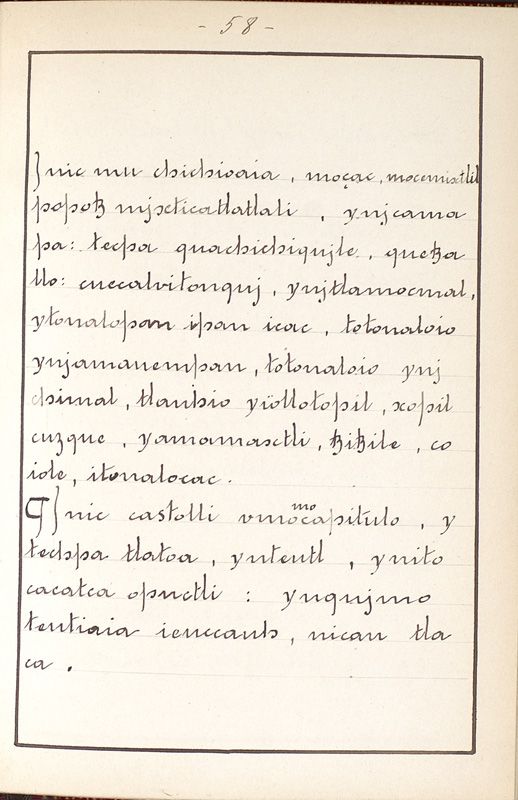 - 58 -
Jnic mu chichioaia, moçac, mocemixtlil
popotz mjxcticatlatlali, ynjcama
pa: tecpa quachichiqujle, quetza
llo: cuecalvitonquj, ynjtlamocmal,
ytonalopan ipan icac, totonaloio
ynjamanempan, totonaloio ynj
chimal, tlauhio yïollotopil, xopil
cuzque, yamamaxtli, tzitzile, co
iole, itonalocac.
¶ Jnic castolli vmomocapitulo, y
techpa tlatoa, ynteutl, ynito
cacatca opuctli: ynqujmo
teutiaia ieuccauh, nican tla
ca.